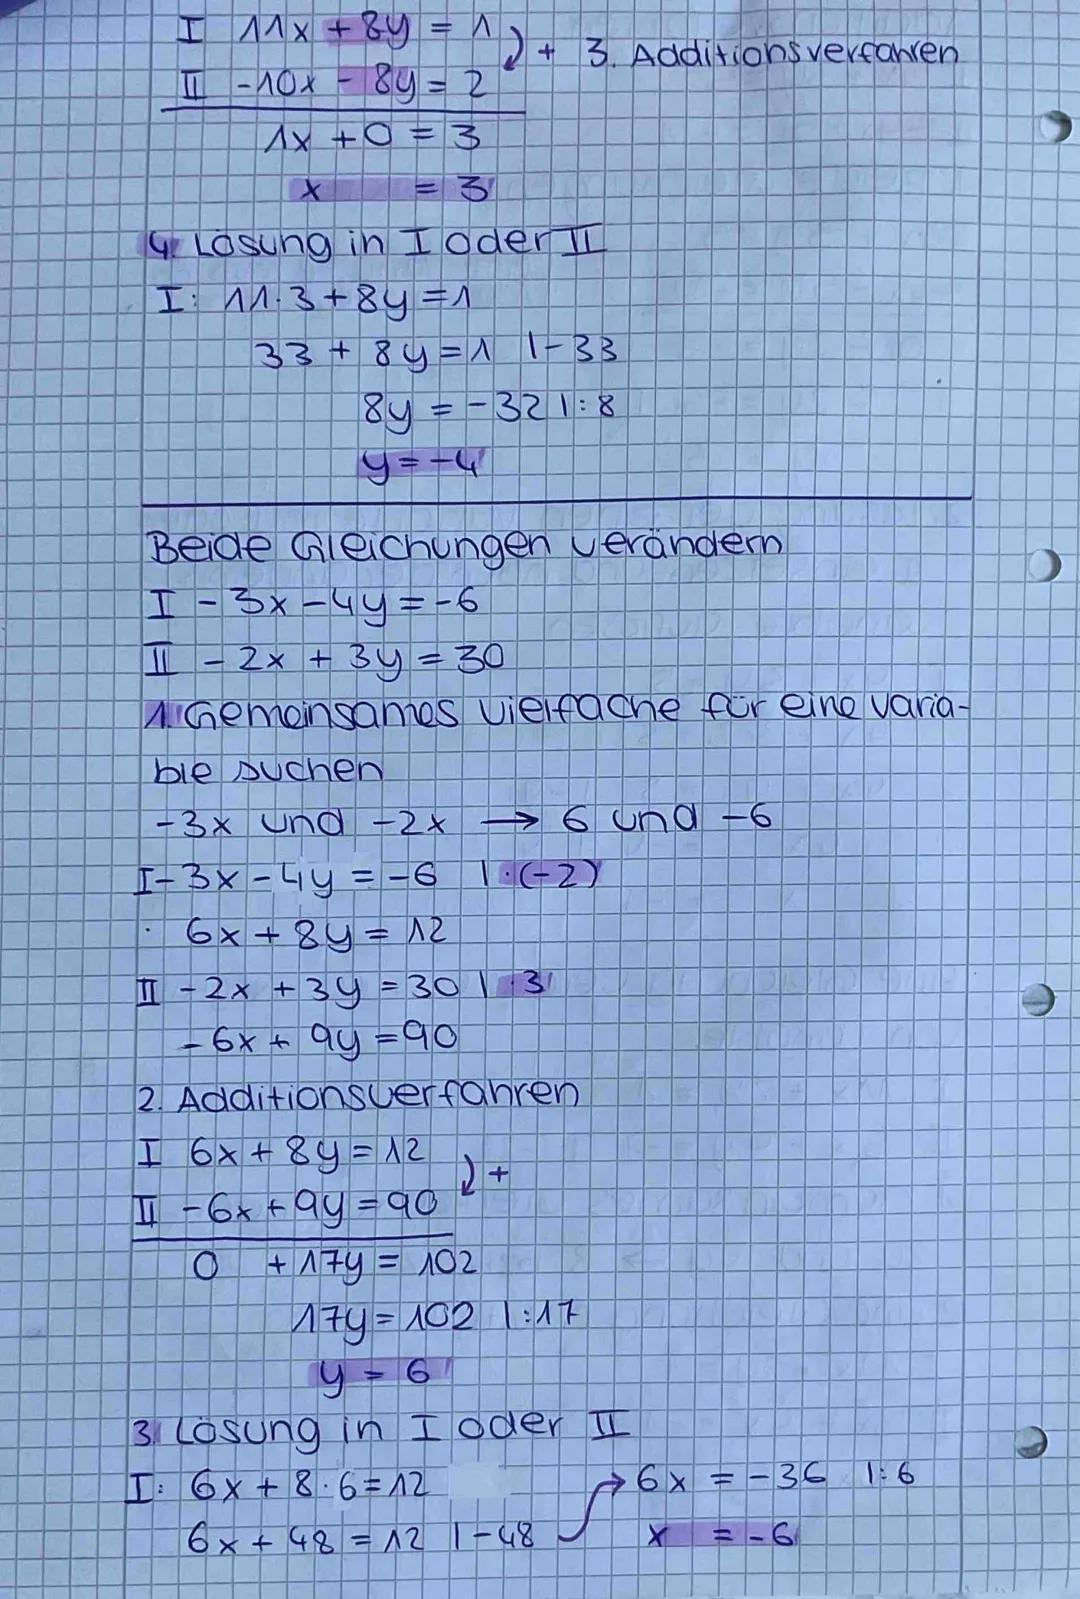 I 11x + 8y = 1
+ 3. Additionsverfahren
II -10x - 8y = 2
1x + 0 = 3
x = 3
4. Lösung in I oder II
I: 11·3 + 8y = 1
33 + 8y = 1 |-33
8y = -32 |:8
y = -4
Beide Gleichungen verändern
I -3x - 4y = -6
II -2x + 3y = 30
1. Gemeinsames Vielfache für eine Varia-
ble suchen
-3x und -2x → 6 und -6
I -3x - 4y = -6 |·(-2)
6x + 8y = 12
II -2x + 3y = 30 |·3
-6x + 9y = 90
2. Additionsverfahren
I 6x + 8y = 12
+
II -6x + 9y = 90
0 + 17y = 102
17y = 102 |:17
y = 6
3. Lösung in I oder II
I: 6x + 8·6 = 12
6x + 48 = 12 |-48
6x = -36 |:6
x = -6